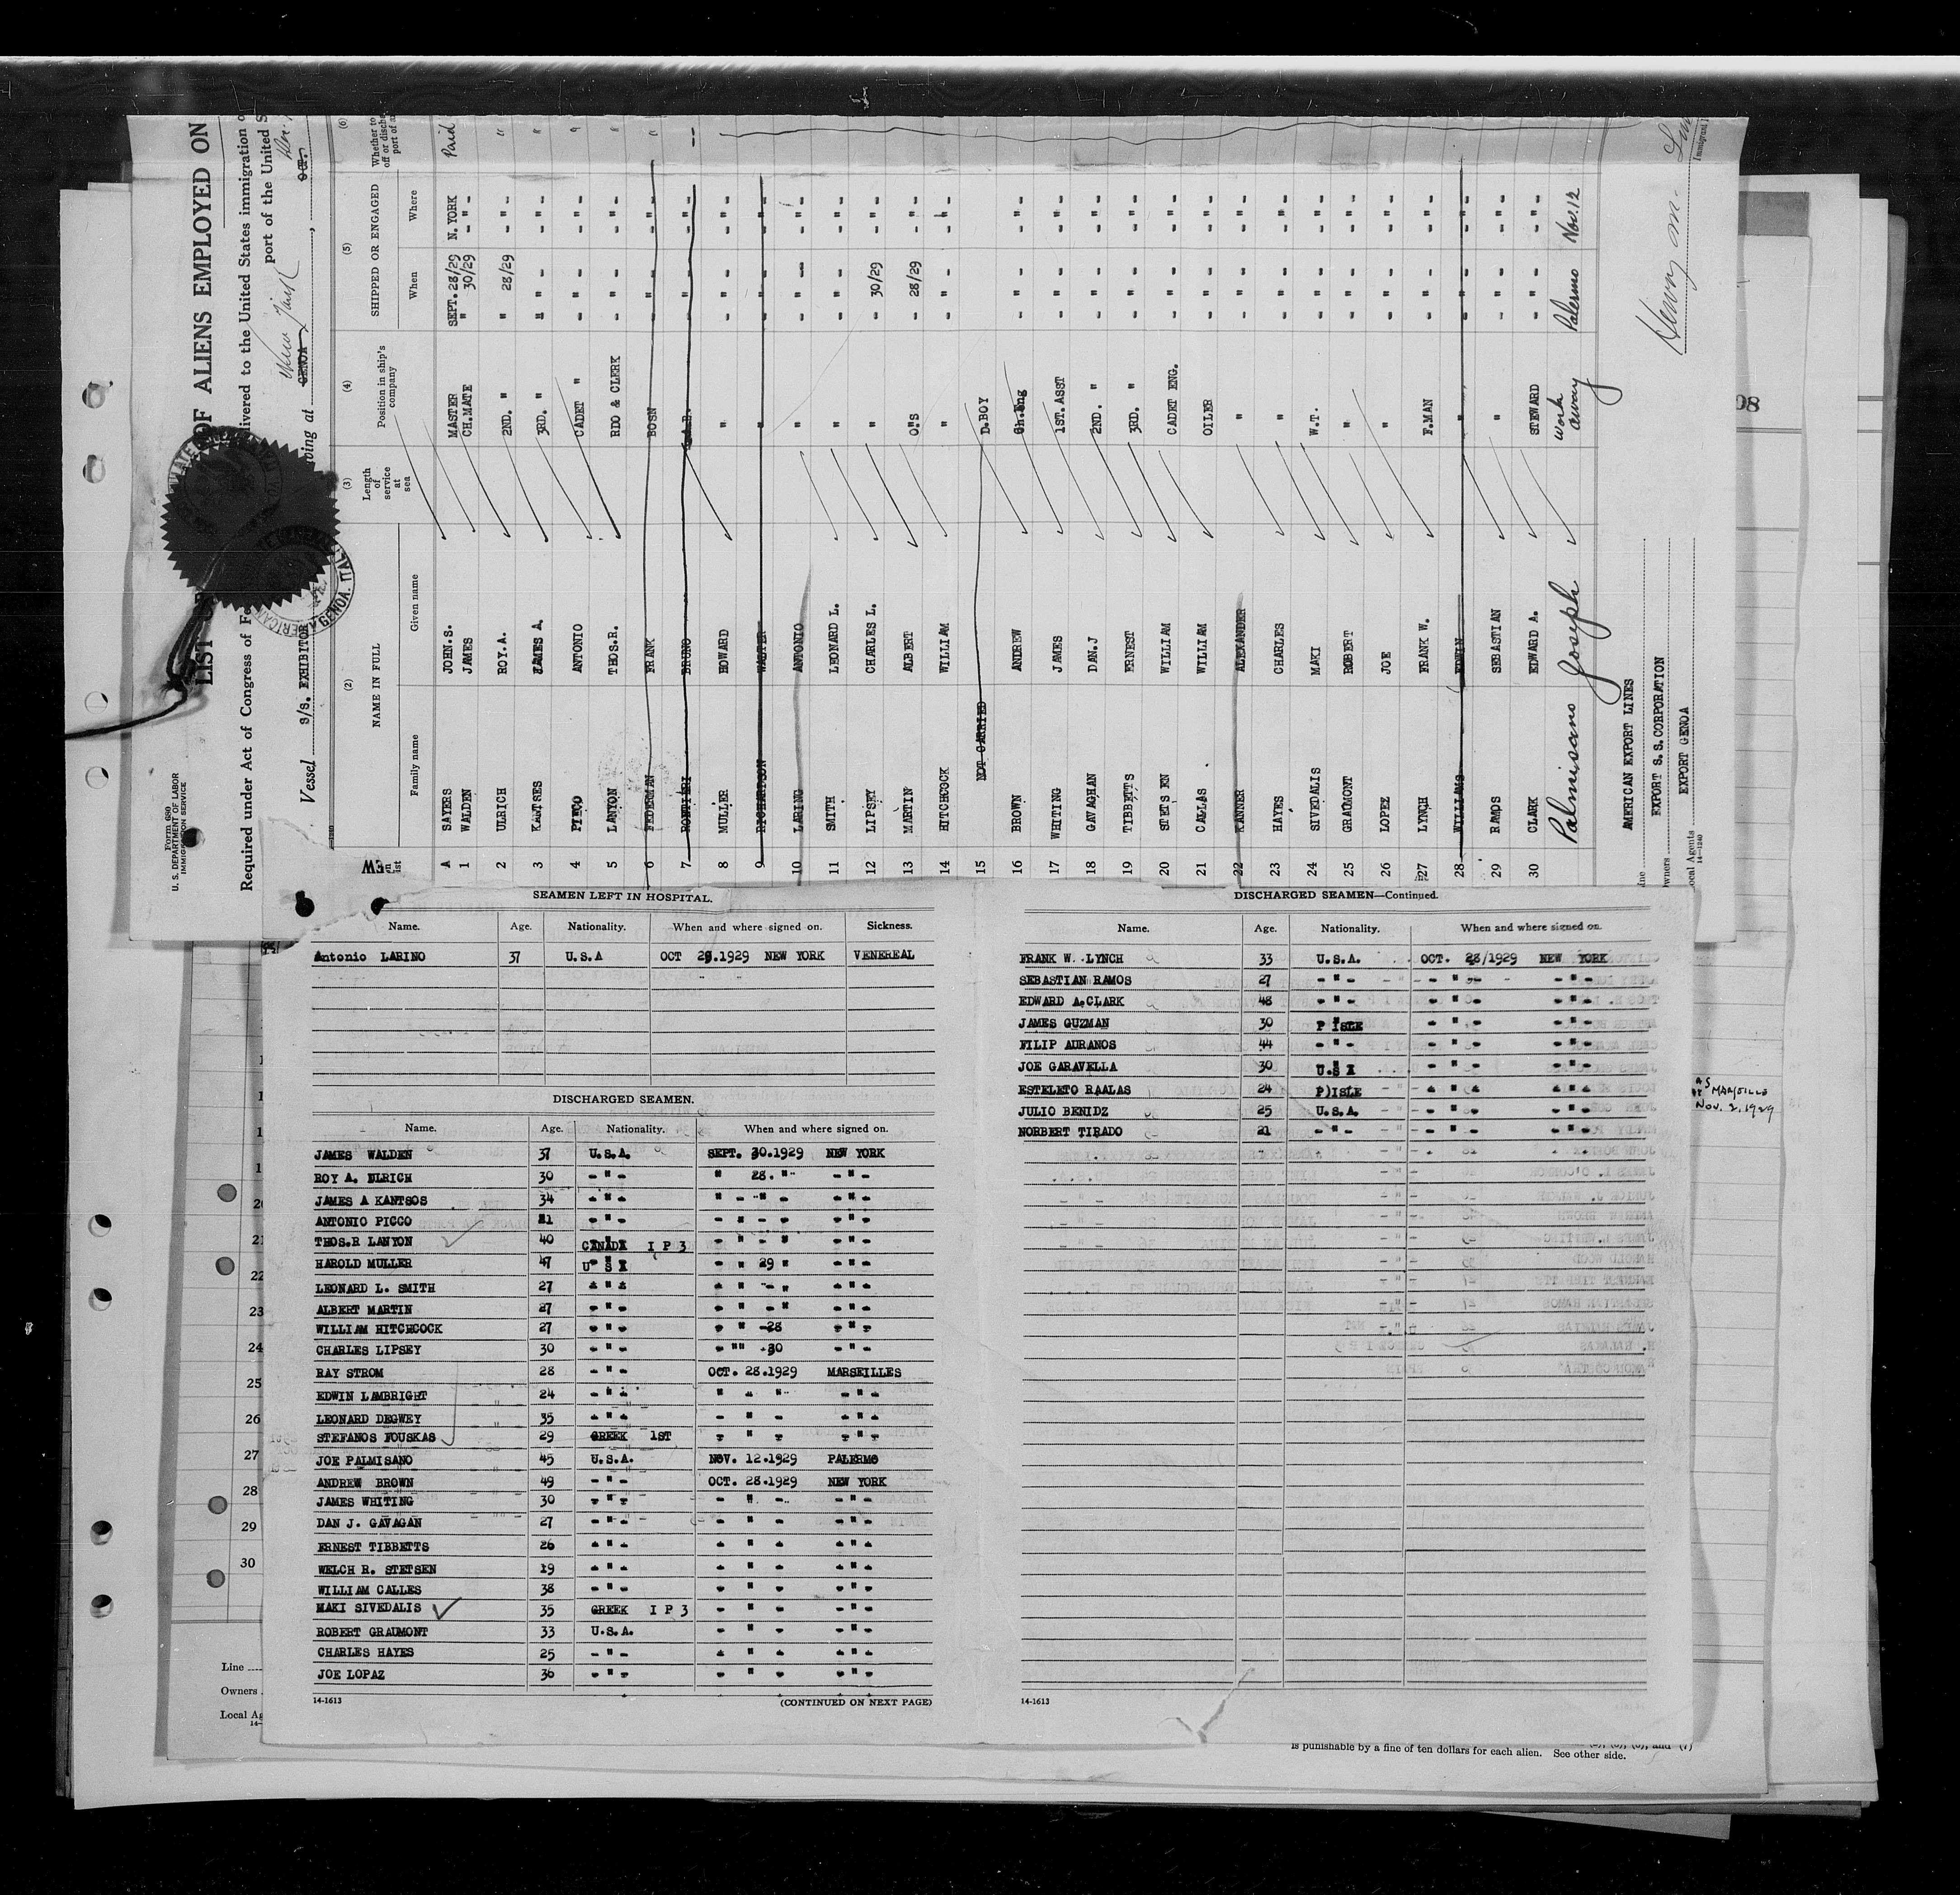 Form 689
U. S. DEPARTMENT OF LABOR
IMMIGRATION SERVICE
LIST OF ALIENS EMPLOYED ON
Required under Act of Congress of Fe livered to the United States immigration
port of the United S
Vessel S/S. EXHIBITOR iving at GENOA New York
(2) (3) (4) (5) (6)
NAME IN FULL Length of service at sea Position in ship's company SHIPPED OR ENGAGED Whether to
Family name Given name When Where
A SAYERS JOHN.S. MASTER SEPT. 28/29 N. YORK Paid
1 WALDEN JAMES CH.MATE " 30/29 - " -
2 ULRICH ROY.A. 2ND. " " 28/29 - " - "
3 KANTSES JAMES A. 3RD. " - " - - " - "
4 PICCO ANTONIO CADET " - " - - " - "
5 LANYON THOS.R. RDO & CLERK - " - - " - "
6 FEDERMAN FRANK BOSN - " - - " - "
7 BRUNO A.B. - " - - " - --
8 MULLER HOWARD " - " - - " -
9 RICHARDSON WALTER " - " - - " -
10 LARINO ANTONIO " - " - - " -
11 SMITH LEONARD L. " - " - - " -
12 LIPSEY CHARLES L. " - 30/29 - " -
13 MARTIN ALBERT O.S - 28/29 - " -
14 HITCHCOCK WILLIAM " - " - - " -
15 NOT CARRIED D.BOY
16 BROWN ANDREW Ch.Eng - " - - " -
17 WHITING JAMES 1ST.ASST - " - - " -
18 GAVAGHAN DAN.J 2ND. " - " - - " -
19 TIBBETTS ERNEST 3RD. " - " - - " -
20 STETSEN WILLIAM CADET ENG. - " - - " -
21 CALLAS WILLIAM OILER - " - - " -
22 KANNER ALEXANDER " - " - - " -
23 HAYES CHARLES " - " - - " -
24 SIVEDALIS MAKI W.T. - " - - " -
25 GRAUMONT ROBERT " - " - - " -
26 LOPEZ JOE " - " - - " -
27 LYNCH FRANK W. F.MAN - " - - " -
28 WILLIAMS EDWIN " - " - - " -
29 RAMOS SEBASTIAN " - " - - " -
30 CLARK EDWARD A. STEWARD - " - - " -
Palmisano Joseph Work away Palermo Nov.12
AMERICAN EXPORT LINES
EXPORT S. S. CORPORATION
Local Agents EXPORT GENOA
14-1240
SEAMEN LEFT IN HOSPITAL.
Name. Age. Nationality. When and where signed on. Sickness.
Antonio LARINO 37 U.S.A OCT 29.1929 NEW YORK VENEREAL
DISCHARGED SEAMEN.
Name. Age. Nationality. When and where signed on.
JAMES WALDEN 37 U.S.A. SEPT. 30.1929 NEW YORK
ROY A. ULRICH 30 - " - " 28. " - " -
JAMES A KANTSOS 34 - " - " - " - - " -
ANTONIO PICCO 21 - " - - " - - - " -
THOS.R LANYON 40 CANADA I P 3 - " - " - " -
HAROLD MULLER 47 U S A - " 29 " - " -
LEONARD L. SMITH 27 - " - - " - " - " -
ALBERT MARTIN 27 - " - - " - " - " -
WILLIAM HITCHCOCK 27 - " - - " -28 - " -
CHARLES LIPSEY 30 - " - - "" -30 - " -
RAY STROM 28 - " - OCT. 28.1929 MARSEILLES
EDWIN LAMBRIGHT 24 - " - " - " - " -
LEONARD DEGWEY 35 - " - - " - - " -
STEFANOS FOUSKAS 29 GREEK 1ST - " - - " -
JOE PALMISANO 45 U.S.A. NOV. 12.1929 PALERMO
ANDREW BROWN 49 - " - OCT. 28.1929 NEW YORK
JAMES WHITING 30 - " - - " - - " -
DAN J. GAVAGAN 27 - " - - " - - " -
ERNEST TIBBETTS 26 - " - - " - - " -
WELCH R. STETSEN 19 - " - - " - - " -
WILLIAM CALLES 38 - " - - " - - " -
MAKI SIVEDALIS 35 GREEK I P 3 - " - - " -
ROBERT GRAUMONT 33 U.S.A. - " - - " -
CHARLES HAYES 25 - " - - " - - " -
JOE LOPAZ 36 - " - - " - - " -
14-1613 (CONTINUED ON NEXT PAGE)
DISCHARGED SEAMEN—Continued.
Name. Age. Nationality. When and where signed on.
FRANK W. LYNCH 33 U.S.A. OCT. 28/1929 NEW YORK
SEBASTIAN RAMOS 27 - " - - " - - " -
EDWARD A.CLARK 48 - " - - " - - " -
JAMES GUZMAN 30 P ISLE - " - - " -
FILIP AURANOS 44 - " - - " - - " -
JOE GARAVELLA 30 U.S A - " - - " -
ESTELETO RAALAS 24 P)ISLE - " - - " -
JULIO BENIDZ 25 U.S.A. - " - - " -
NORBERT TIRADO 21 - " - - " - - " -
14-1613
MARSEILLE
Nov. 2, 1929
08
20
21
22
23
24
25
26
27
28
29
30
Line
Owners
Local Ag
is punishable by a fine of ten dollars for each alien. See other side.